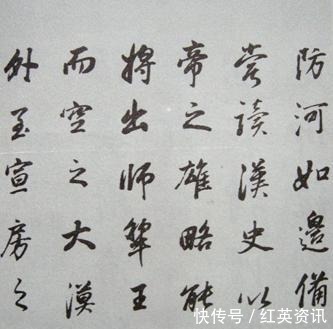 防河如邊備
嘗讀漢史以
帝之雄略能
將出師犂王
而空之大漠
外至宣房之
快传号/红英资讯